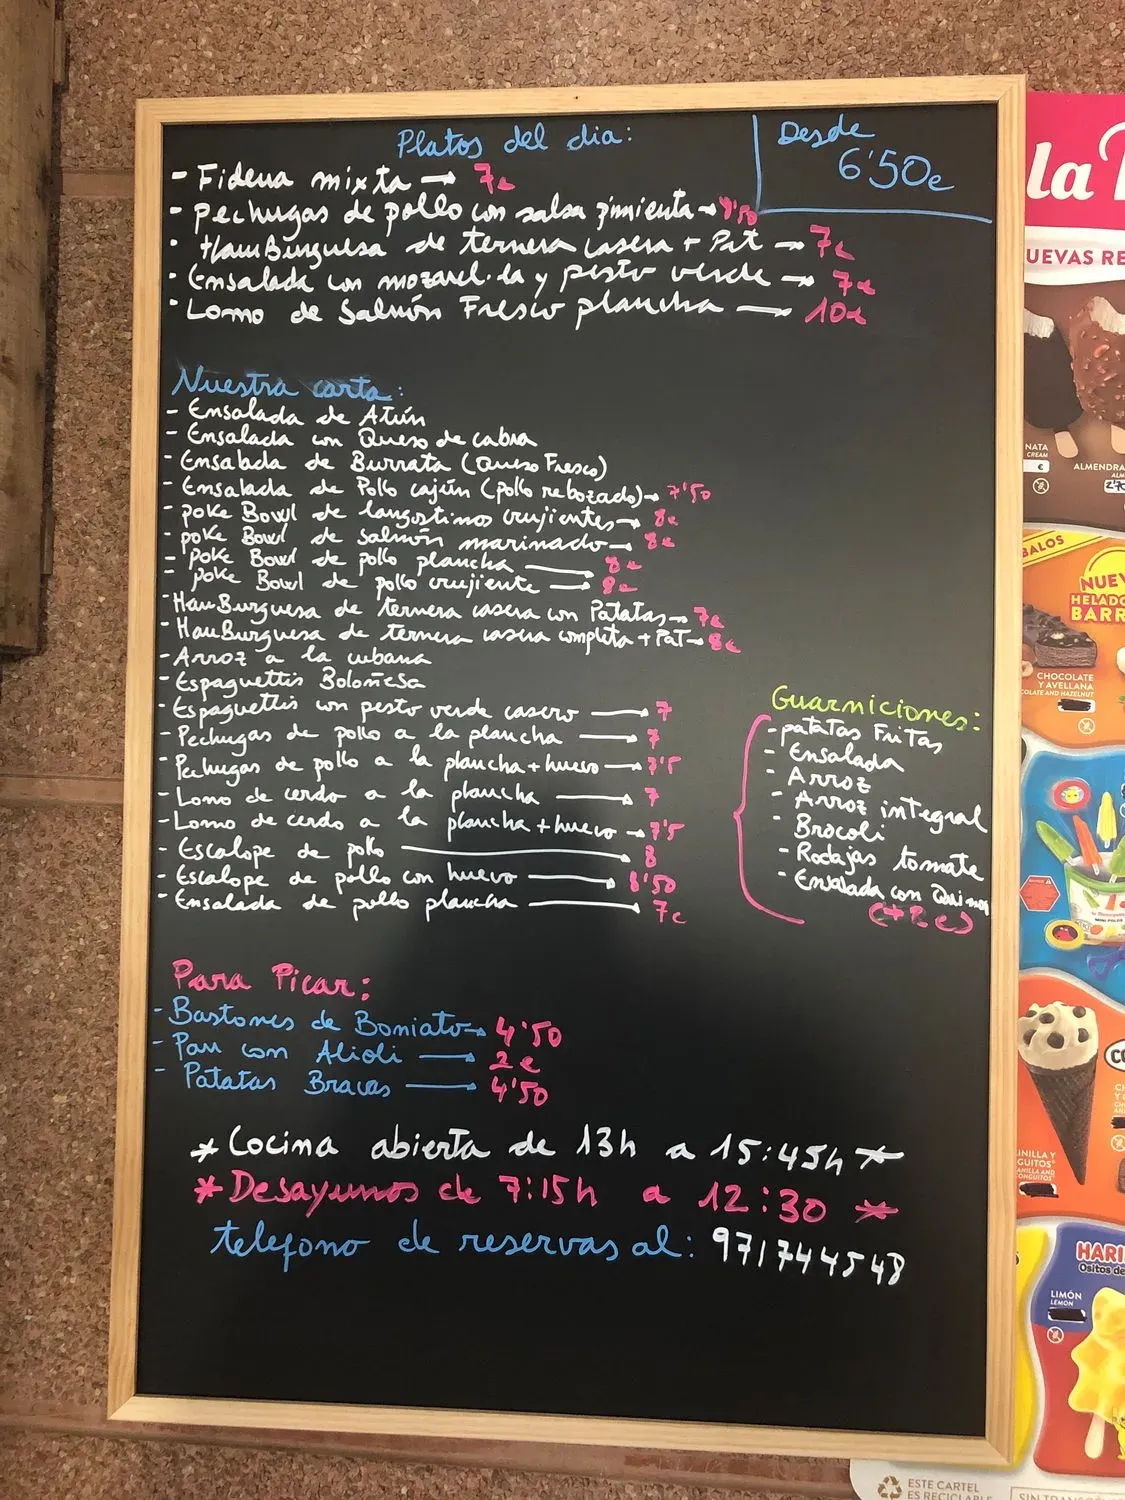 Platos del dia:
Desde
6'50e
- Fideua mixta → 7e
- pechugas de pollo con salsa pimienta →
- HamBurguesa de ternera casera + Pat → 7e
- Ensalada con mozarel·la y pesto verde → 7e
- Lomo de Salmón Fresco plancha → 10e
Nuestra carta:
- Ensalada de Atún
- Ensalada con Queso de cabra
- Ensalada de Burrata (Queso Fresco)
- Ensalada de Pollo cajún (pollo rebozado) → 7'50
- poke Bowl de langostinos crujientes → 8e
- poke Bowl de Salmón marinado → 8e
- poke Bowl de pollo plancha → 8e
- poke Bowl de pollo crujiente → 8e
- HamBurguesa de ternera casera con Patatas → 7e
- HamBurguesa de ternera casera completa + Pat → 8e
- Arroz a la cubana
- Espaguettis Boloñesa
- Espaguettis con pesto verde casero → 7
- Pechugas de pollo a la plancha → 7
- Pechugas de pollo a la plancha + huevo → 7'5
- Lomo de cerdo a la plancha → 7
- Lomo de cerdo a la plancha + huevo → 7'5
- Escalope de pollo → 8
- Escalope de pollo con huevo → 8'50
- Ensalada de pollo plancha → 7e
Guarniciones:
- patatas Fritas
- Ensalada
- Arroz
- Arroz integral
- Brocoli
- Rodajas tomate
- Ensalada con Quinoa
Para Picar:
- Bastones de Boniato → 4'50
- Pan con Alioli → 2e
- Patatas Bravas → 4'50
* Cocina abierta de 13h a 15:45h *
* Desayunos de 7:15h a 12:30 *
telefono de reservas al: 971744548
la
UEVAS RE
NATA
CREAM
€
ALMENDRA
BALOS
NUEV
HELADO
BARR
CHOCOLATE
Y AVELLANA
COLATE AND HAZELNUT
HARI
Ositos de
LIMÓN
LEMON
ESTE CARTEL
ES RECICLABLE